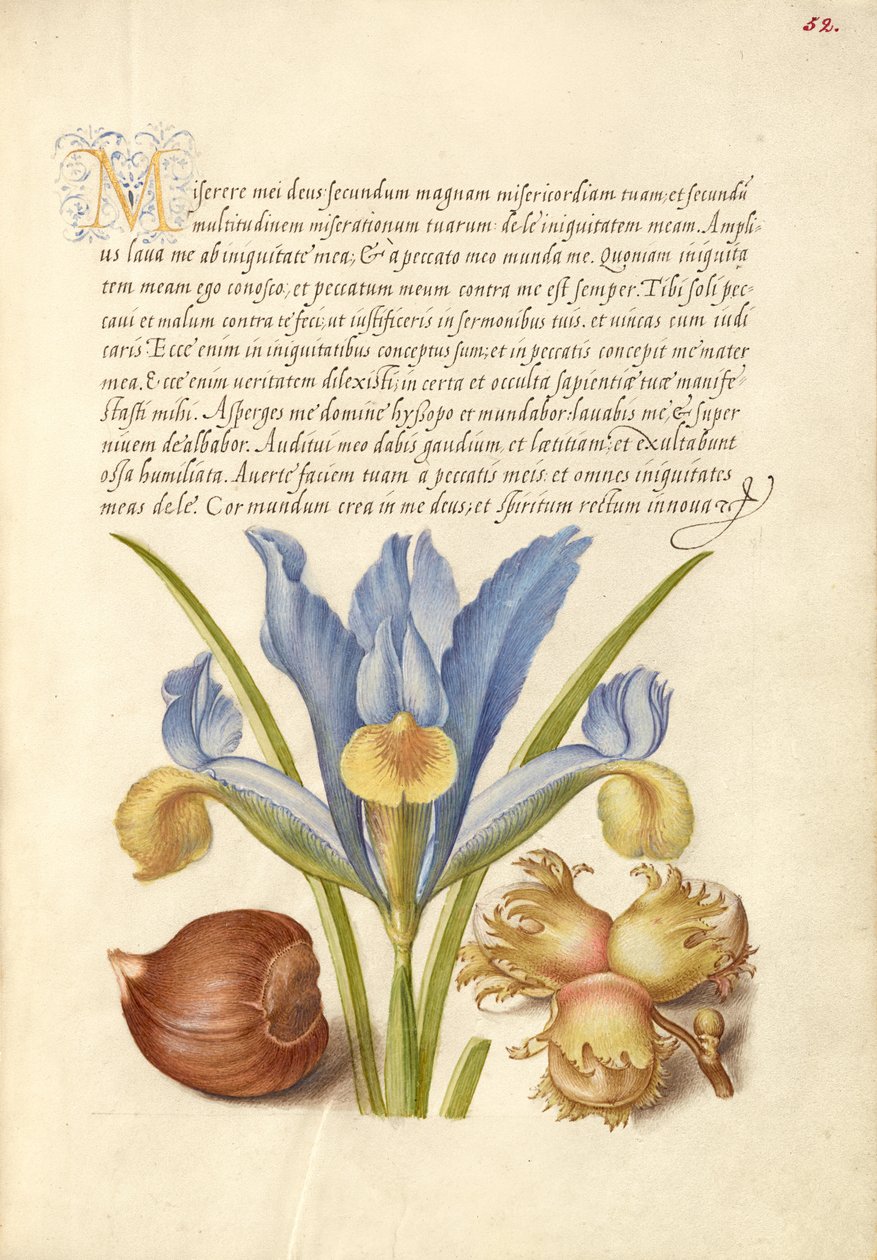 52.
Miserere mei deus secundum magnam misericordiam tuam; et secundū
multitudinem miserationum tuarum dele iniquitatem meam. Ampli-
us laua me ab iniquitate mea; & à peccato meo munda me. Quoniam iniquita
tem meam ego conosco; et peccatum meum contra me est semper. Tibi soli pec-
caui et malum contra te feci; ut iustificeris in sermonibus tuis. et uincas cum iudi
caris Ecce enim in iniquitatibus conceptus sum; et in peccatis concepit me mater
mea. Ecce enim ueritatem dilexisti; in certa et occulta sapientiæ tuæ manife-
stasti mihi. Asperges me domine hyßopo et mundabor: lauabis me, & super
niuem dealbabor. Auditui meo dabis gaudium, et lætitiam; et exultabunt
ossa humiliata. Auerte faciem tuam à peccatis meis: et omnes iniquitates
meas dele. Cor mundum crea in me deus; et spiritum rectum innoua